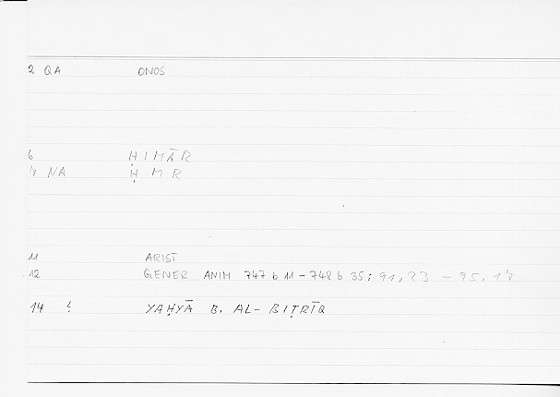 2 QA ONOS
6 ḤIMĀR
7 NA ḤMR
11 ARIST
12 GENER ANIM 747 b 11 - 748 b 35; 91,23 - 95,17
14 YAḤYĀ B. AL-BIṬRĪQ